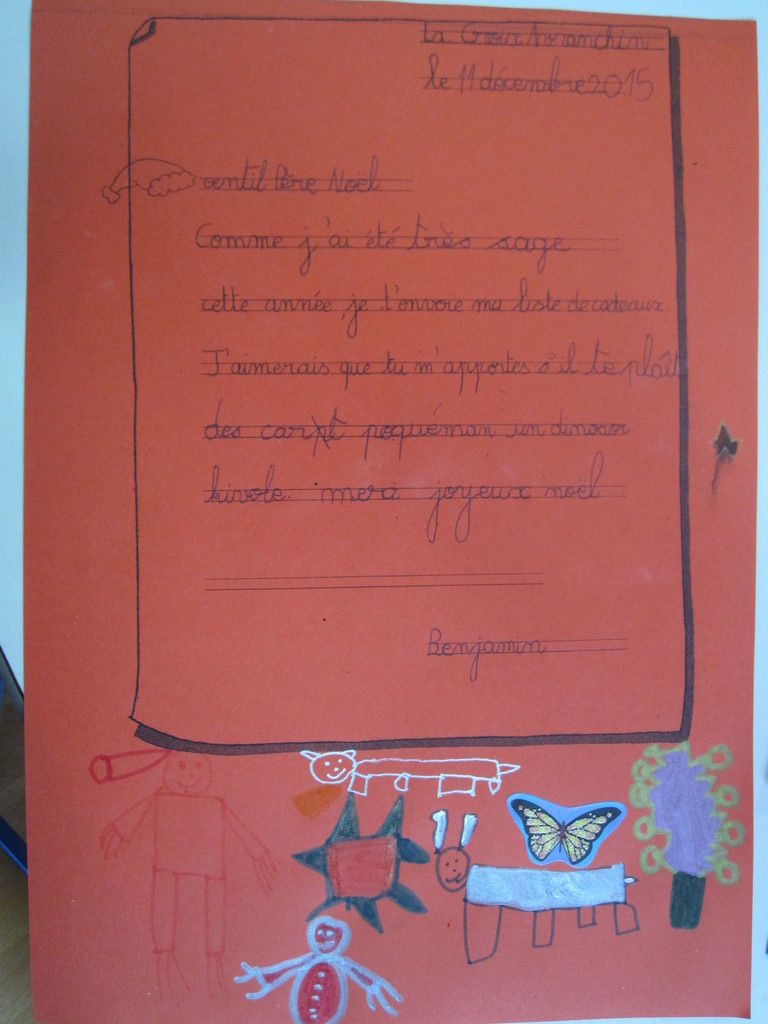 La Croix Avranchin
le 11 décembre 2015
Gentil Père Noël
Comme j'ai été très sage
cette année, je t'envoie ma liste de cadeaux.
J'aimerais que tu m'apportes s'il te plaît
des carpt poquéman un
merci joyeux noël
Benjamin